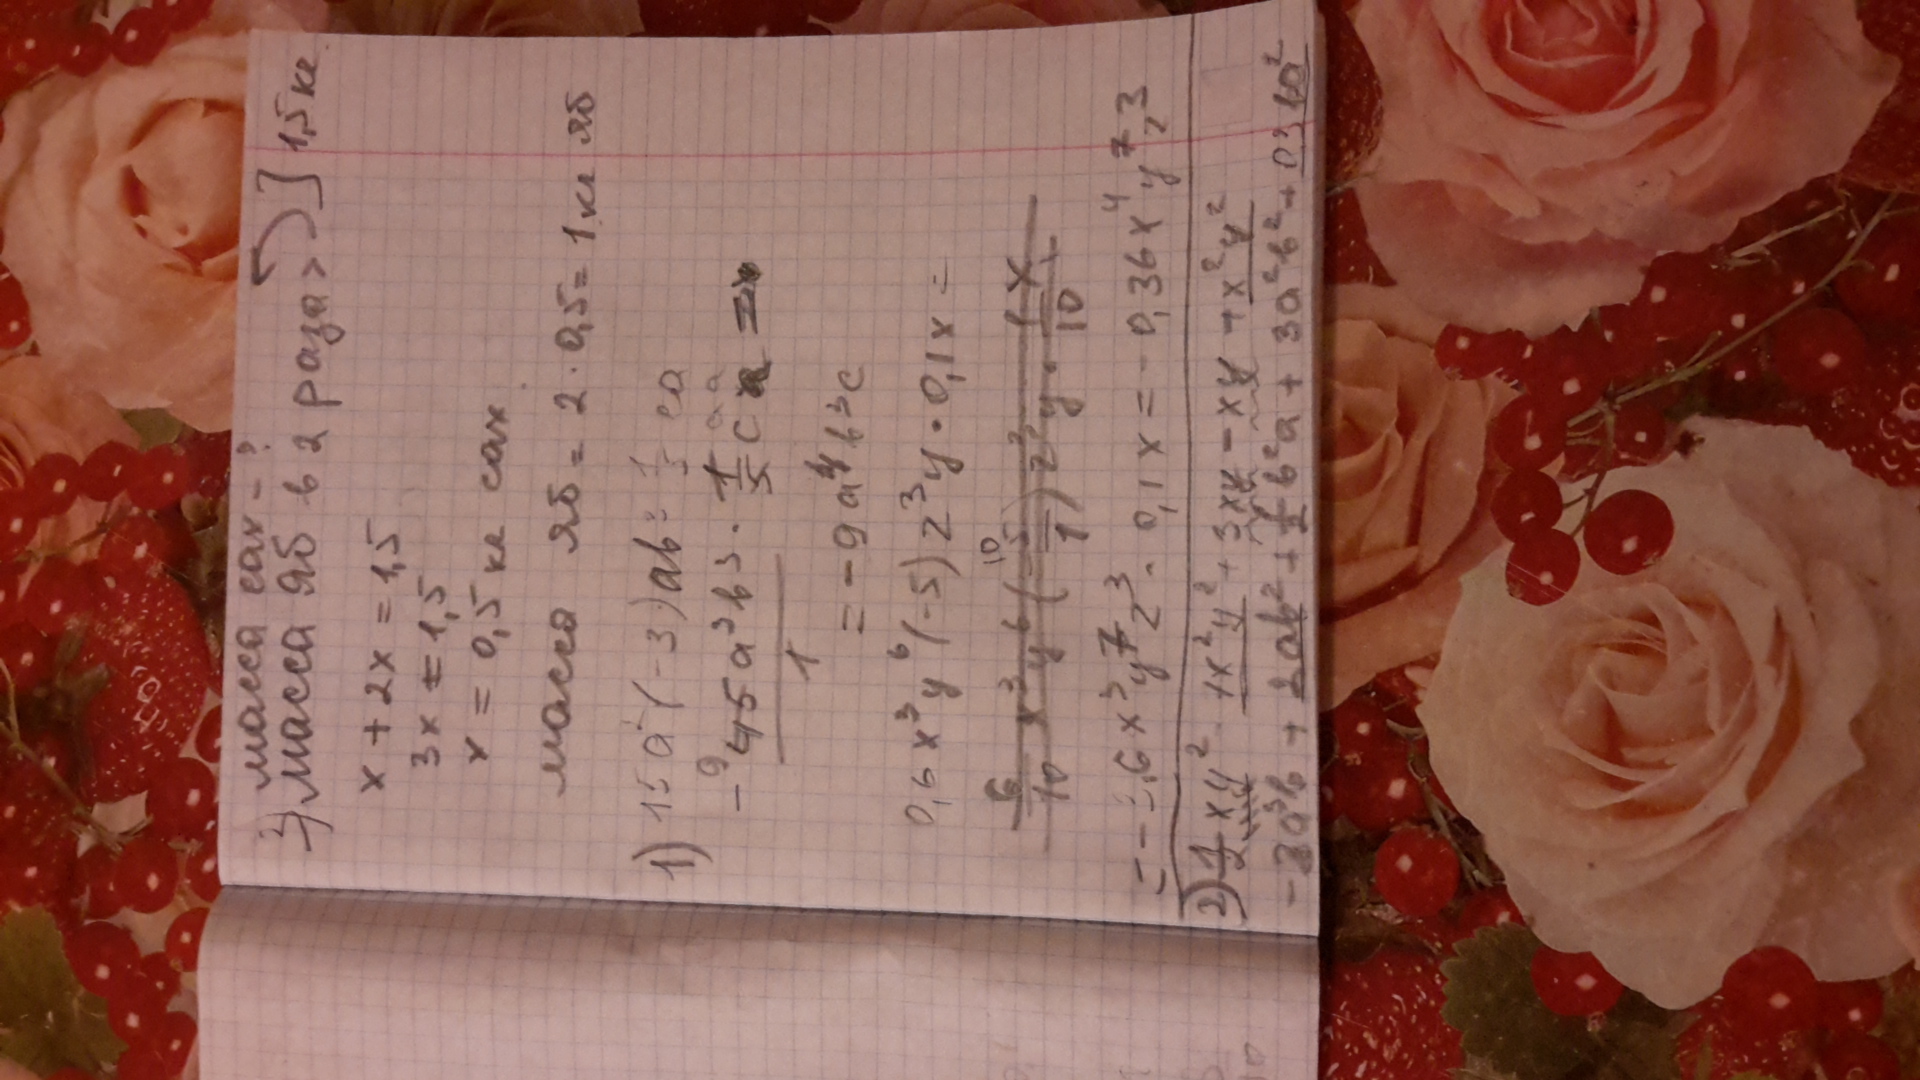 масса сах - ?
2) масса яб в 2 раза > ] 1,5 кг
x + 2x = 1,5
3x = 1,5
x = 0,5 кг сах
масса яб = 2 · 0,5 = 1 кг яб
1) 15a (-3)ab² 1/5 ca
- 45a³b³ · 1/5 c
9
1
= -9a⁴b³c
0,6x³y⁶(-5)z³y · 0,1x =
= - 3,6x³y⁷z³ · 0,1x = - 0,36x⁴y⁷z³
2) 1/2 xy² + x²y² + 3xy - xy + x²y²
-3a³b + 2ab² + 1/2 b²a + 3a²b² + 0,3 ba²